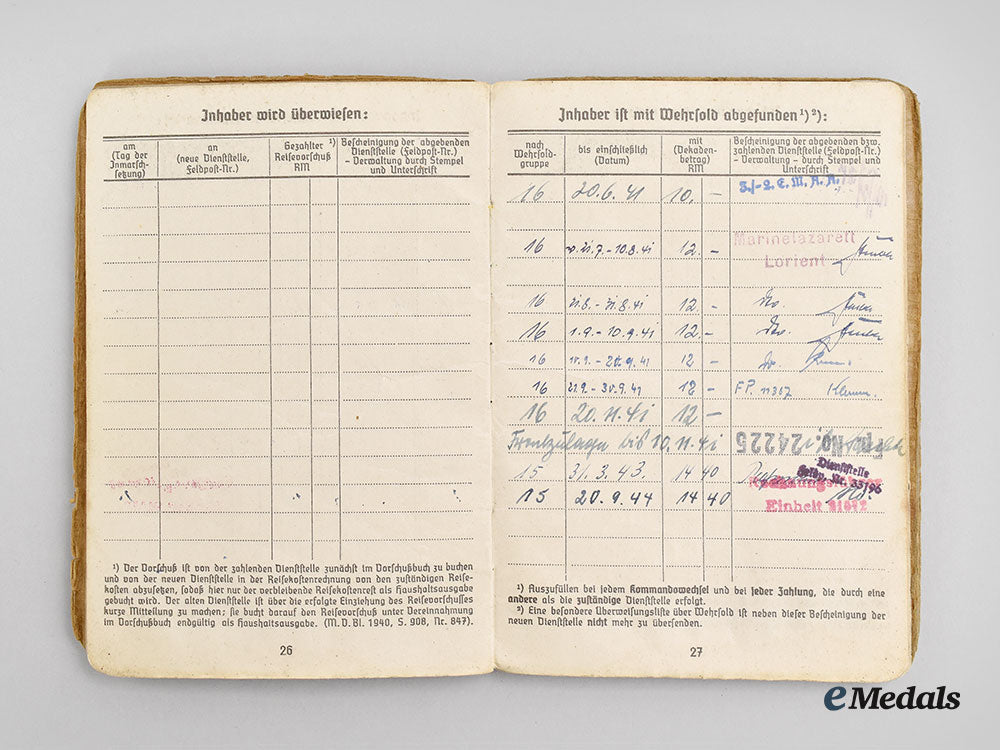 Inhaber wird überwiesen:
am
(Tag der
Inmarsch-
setzung)
an
(neue Dienststelle,
Feldpost-Nr.)
Gezahlter ¹)
Reisevorschuß
RM
Bescheinigung der abgebenden
Dienststelle (Feldpost-Nr.)
- Verwaltung durch Stempel
und Unterschrift
¹) Der Vorschuß ist von der zahlenden Dienststelle zunächst im Vorschußbuch zu buchen
und von der neuen Dienststelle in der Reisekostenrechnung von den zuständigen Reise-
kosten abzusetzen, sodaß hier nur der verbleibende Reisekostenrest als Haushaltsausgabe
gebucht wird. Der alten Dienststelle ist über die erfolgte Einziehung des Reisevorschusses
kurze Mitteilung zu machen; sie bucht darauf den Reisevorschuß unter Vereinnahmung
im Vorschußbuch endgültig als Haushaltsausgabe. (M. D. Bl. 1940, S. 908, Nr. 847).
26
Inhaber ist mit Wehrsold abgefunden ¹) ²):
nach
Wehrsold-
gruppe
bis einschließlich
(Datum)
mit
(Dekaden-
betrag)
RM
Bescheinigung der abgebenden bzw.
zahlenden Dienststelle (Feldpost-Nr.)
- Verwaltung - durch Stempel und
Unterschrift
16 20.6.41 10. –
16 7. - 10.8.41 12. –
Marinelazarett
Lorient
16 8. - 31.8.41 12 –
16 1.9. - 10.9.41 12. –
16 9. - 20.9.41 12 –
16 21.9. - 30.9.41 12 – FP.
16 20.11.41 12 –
Frontzulagen bis 10.11.41 No. 24225
15 31.3.43 14 40
Dienststelle
Feldp. Nr. 33196
15 20.9.44 14 40
Einheit
¹) Auszufüllen bei jedem Kommandowechsel und bei jeder Zahlung, die durch eine
andere als die zuständige Dienststelle erfolgt.
²) Eine besondere Überweisungsliste über Wehrsold ist neben dieser Bescheinigung der
neuen Dienststelle nicht mehr zu übersenden.
27
eMedals